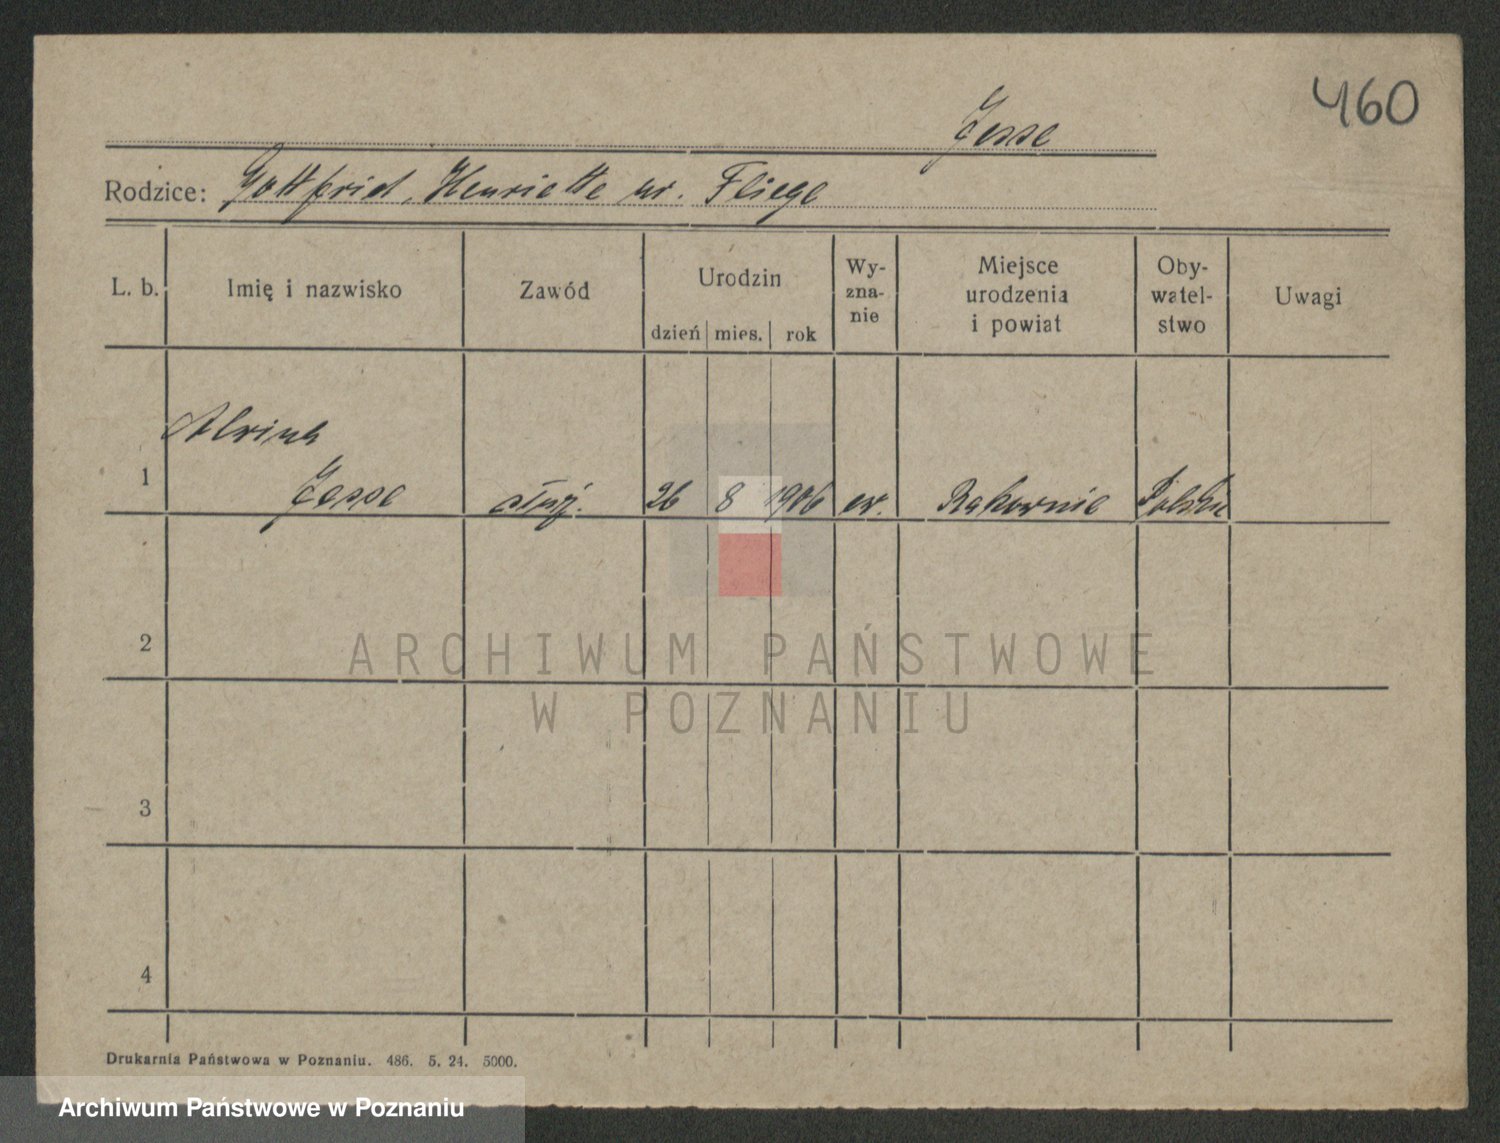 460
Jesse
Rodzice: Gottfried, Henriette ur. Fliege
L. b. Imię i nazwisko Zawód Urodzin dzień mies. rok Wy-zna-nie Miejsce urodzenia i powiat Oby-watel-stwo Uwagi
1 Jesse służ. 26 8 1906 ew. Rakownie Polskie
2
3
4
ARCHIWUM PAŃSTWOWE
W POZNANIU
Drukarnia Państwowa w Poznaniu. 486. 5. 24. 5000.
Archiwum Państwowe w Poznaniu